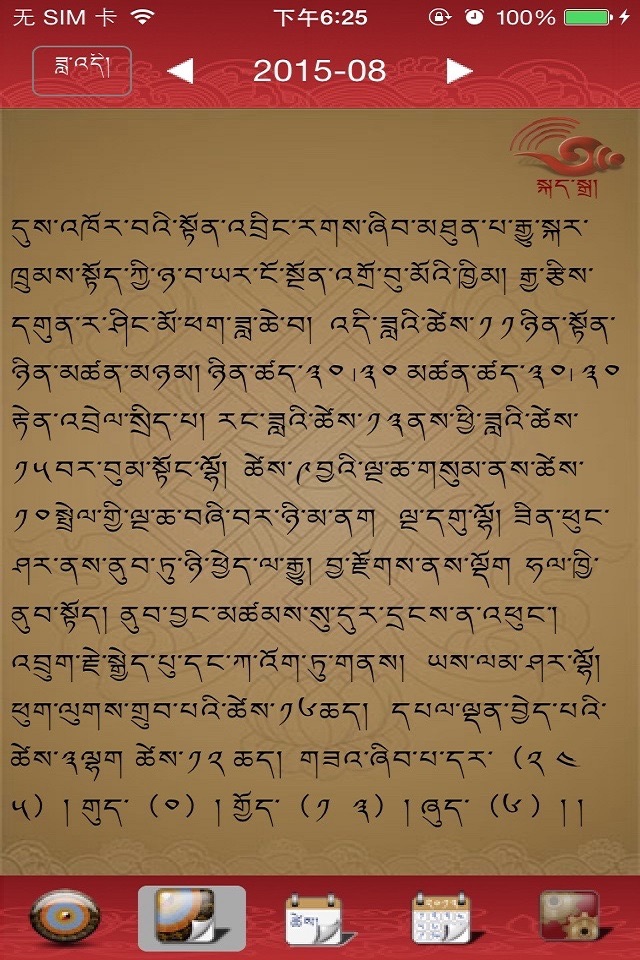 无 SIM 卡
下午6:25
100%
ཟླ་འདི།
2015-08
སྐད་སྒྲ།
དུས་འཁོར་བའི་སྟོན་འབྲིང་རགས་ཞིབ་མཐུན་པ་རྒྱུ་སྐར་
ཁྲུམས་སྟོད་ཀྱི་ཉ་བ་ཡར་ངོ་སྔོན་འགྲོ་བུ་མོའི་ཁྱིམ། རྒྱ་རྩིས་
དགུན་ར་ཤིང་མོ་ཕག་ཟླ་ཆེ་བ། འདི་ཟླའི་ཚེས་༡༡ཉིན་སྟོན་
ཉིན་མཚན་མཉམ། ཉིན་ཚད་༣༠།༣༠ མཚན་ཚད་༣༠།༣༠
རྟེན་འབྲེལ་སྲིད་པ། རང་ཟླའི་ཚེས་༡༣ནས་ཕྱི་ཟླའི་ཚེས་
༡༥བར་བུམ་སྟོང་ལྷོ། ཚེས་༩བྱའི་ལྔ་ཆ་གསུམ་ནས་ཚེས་
༡༠སྤྲེལ་གྱི་ལྔ་ཆ་བཞི་བར་ཉི་མ་ནག ལྔ་དགུ་ལྷོ། ཟིན་ཕུང་
ཤར་ནས་ནུབ་ཏུ་ཉི་ཕྱེད་ལ་རྒྱུ། བྱ་རྫོགས་ནས་ལྡོག ཧལ་ཁྱི་
ནུབ་སྟོད། ནུབ་བྱང་མཚམས་སུ་དུར་དྲངས་ན་འཕུང་།
འབྲུག་རྗེ་སྐྱེད་པུ་དང་ཀ་འོག་ཏུ་གནས། ཡས་ལམ་ཤར་ལྷོ།
ཕུག་ལུགས་གྲུབ་པའི་ཚེས་༡༦ཆད། དཔལ་ལྡན་བྱེད་པའི་
ཚེས་༣ལྷག ཚེས་༡༢ཆད། གཟའ་ཞིབ་པ་དར་ (༢ ༤
༥) ། གུད་ (༠) ། གྱོད་ (༡ ༣) ། ཞུད་ (༦) ། །
ཚེས།
༢༠༡༢